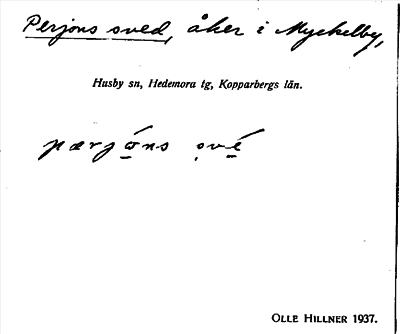 Perjons sved, åker i Myckelby,
Husby sn, Hedemora tg, Kopparbergs län.
pærjó̲ns ṣvé̲
OLLE HILLNER 1937.